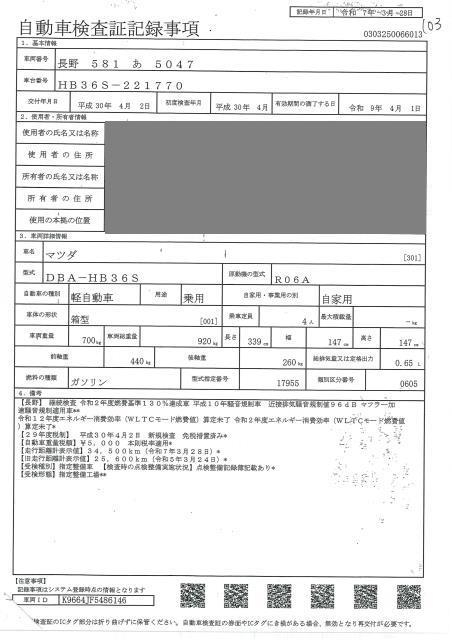 記録年月日 令和 7年 3月 28日
(03
自動車検査証記録事項
0303250066013
1. 基本情報
車両番号 長野 581 あ 5047
車台番号 HB36S-221770
交付年月日 平成30年 4月 2日 初度検査年月 平成30年 4月 有効期間の満了する日 令和 9年 4月 1日
2. 使用者・所有者情報
使用者の氏名又は名称
使用者の住所
所有者の氏名又は名称
所有者の住所
使用の本拠の位置
3. 車両詳細情報
車名 マツダ [301]
型式 DBA-HB36S 原動機の型式 R06A
自動車の種別 軽自動車 用途 乗用 自家用・事業用の別 自家用
車体の形状 箱型 [001] 乗車定員 4人 最大積載量 -kg
車両重量 700kg 車両総重量 920kg 長さ 339cm 幅 147cm 高さ 147cm
前軸重 440kg 後軸重 260kg 総排気量又は定格出力 0.65 L
燃料の種類 ガソリン 型式指定番号 17955 類別区分番号 0605
4. 備考
【長野】 継続検査 令和2年度燃費基準130%達成車 平成10年騒音規制車 近接排気騒音規制値96dB マフラー加
速騒音規制適用車**
令和12年度エネルギー消費効率(WLTCモード燃費値)算定未了 令和2年度エネルギー消費効率(WLTCモード燃費値
)算定未了*
【29年度税制】 平成30年4月2日 新規検査 免税措置済み*
【自動車重量税額】¥5,000 本則税率適用*
【走行距離計表示値】34,500km(令和7年3月28日)
【旧走行距離計表示値】25,600km(令和5年3月24日)*
【受検種別】指定整備車 【検査時の点検整備実施状況】点検整備記録簿記載あり*
【受検形態】指定整備工場**
【注意事項】
記録事項はシステム登録時点の情報となります
車両ID K9664JF5486146
検査証のICタグ部分は折り曲げずに保管ください。自動車検査証の券面やICタグに き損がある場合、無効となり再交付が必要です。